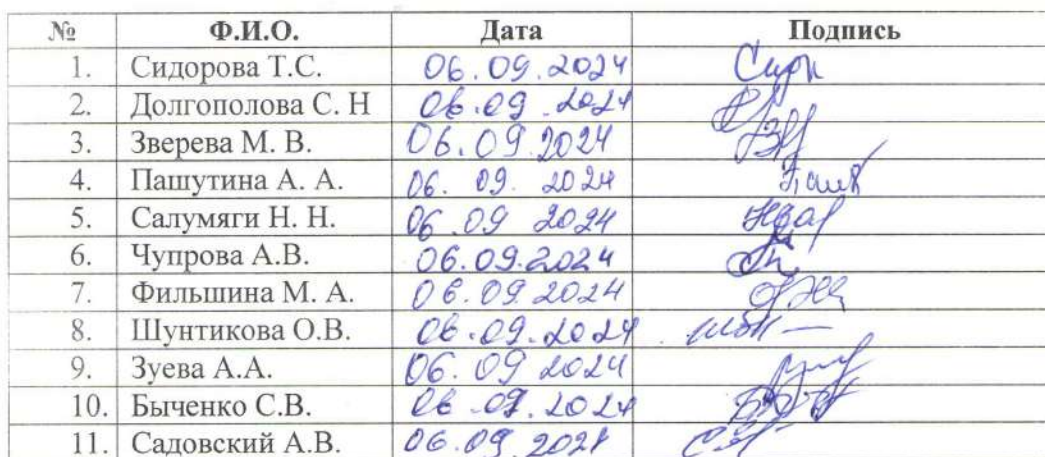 № Ф.И.О. Дата Подпись
1. Сидорова Т.С. 06.09.2024
2. Долгополова С. Н 06.09.2024
3. Зверева М. В. 06.09.2024
4. Пашутина А. А. 06. 09. 2024
5. Салумяги Н. Н. 06.09 2024
6. Чупрова А.В. 06.09.2024
7. Фильшина М. А. 06.09.2024
8. Шунтикова О.В. 06.09.2024
9. Зуева А.А. 06.09 2024
10. Быченко С.В. 06.09.2024
11. Садовский А.В. 06.09.2024